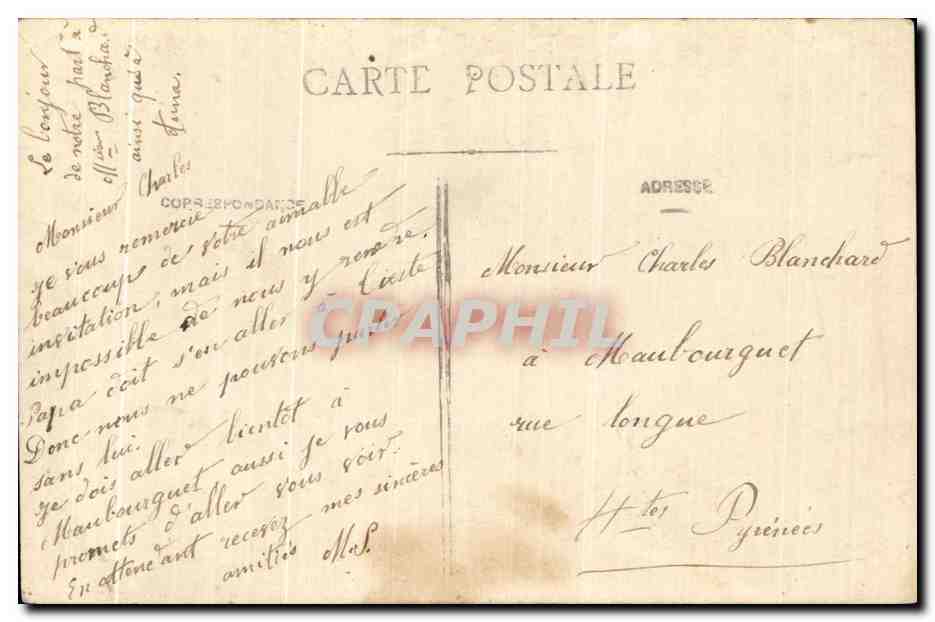 CARTE POSTALE
CORRESPONDANCE
ADRESSE
Le bonjour
de notre part à
Mme Blanchard
ainsi qu'à
Monsieur Charles
Je vous remercie
beaucoup de votre aimable
invitation, mais il nous est
impossible de nous y rendre.
Papa doit s'en aller à
Donc nous ne pouvons partir
sans lui.
Je dois aller bientôt à
Maubourguet aussi je vous
promets d'aller vous voir.
En attendant recevez mes sincères
amitiés M.S.
Monsieur Charles Blanchard
à Maubourguet
rue longue
Htes Pyrénées
CPAPHIL